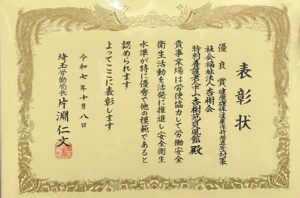 表彰状
優良賞
社会福祉法人杏樹会
特別養護老人ホーム杏樹苑爽風館 殿
貴事業場は労使協力して労働安全
衛生活動を活発に推進し安全衛生
水準が特に優秀で他の模範であると
認められます
よってここに表彰します
令和七年十月八日
埼玉労働局長 片淵仁文